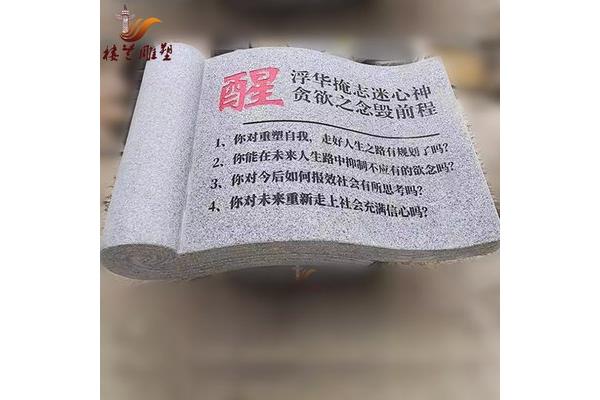 楼兰雕塑
醒
浮华掩志迷心神
贪欲之念毁前程
1、你对重塑自我，走好人生之路有规划了吗?
2、你能在未来人生路中抑制不应有的欲念吗?
3、你对今后如何报效社会有所思考吗?
4、你对未来重新走上社会充满信心吗?